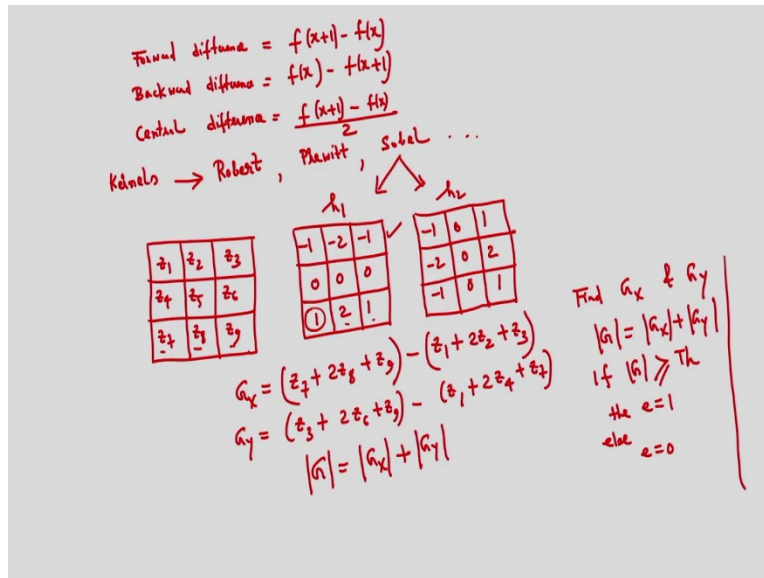 Forward difference = f(x+1) - f(x)
Backward difference = f(x) - f(x+1)
Central difference = f(x+1) - f(x) / 2
Kernels → Robert, Prewitt, Sobel ...
h1 h2
z1 z2 z3
z4 z5 z6
z7 z8 z9
-1 -2 -1 ✓
0 0 0
1 2 1
-1 0 1
-2 0 2
-1 0 1
Gx = (z7 + 2z8 + z9) - (z1 + 2z2 + z3)
Gy = (z3 + 2z6 + z9) - (z1 + 2z4 + z7)
|G| = |Gx| + |Gy|
Find Gx & Gy
|G| = |Gx| + |Gy|
if |G| ⩾ Th
the e=1
else
e=0